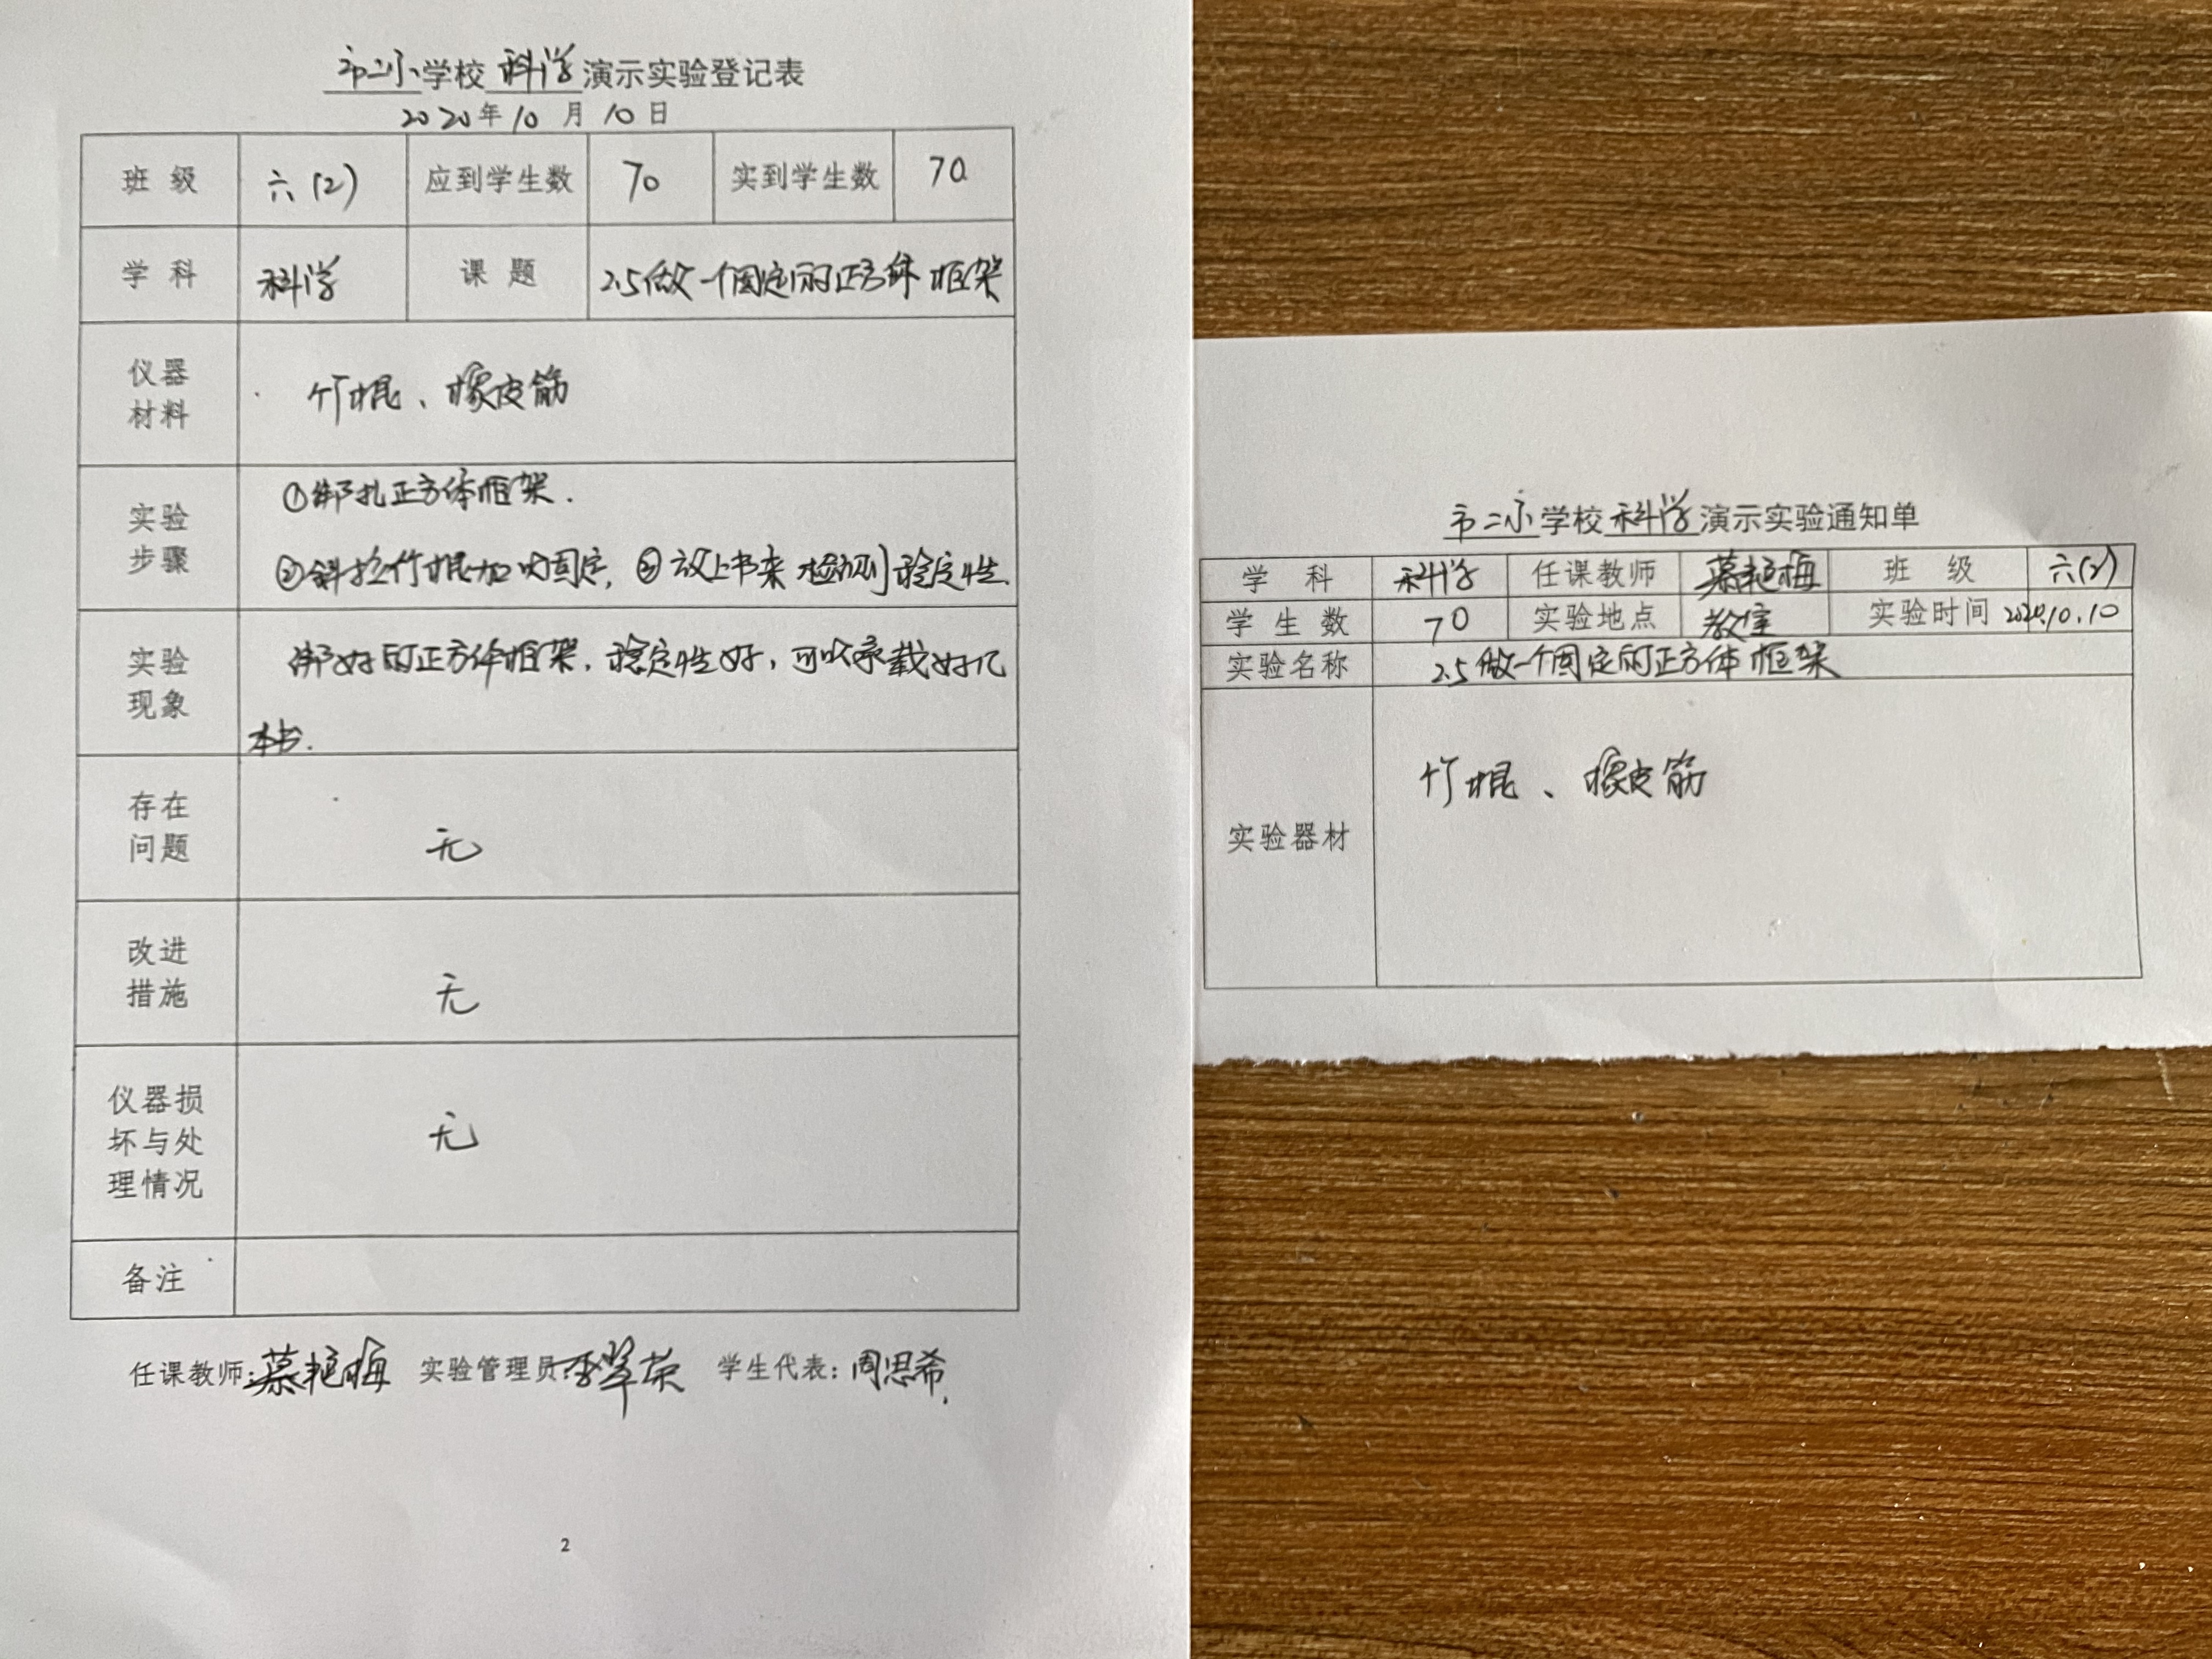 市二小学校科学演示实验登记表
2020年10月10日
班级 六(2) 应到学生数 70 实到学生数 70
学科 科学 课题 2.5做一个固定的正方体框架
仪器
材料
竹棍、橡皮筋
实验
步骤
①绑扎正方体框架.
②斜拉竹棍加以固定,③放上书来检测稳定性.
实验
现象
绑好的正方体框架,稳定性好,可以承载好几
本书.
存在
问题
无
改进
措施
无
仪器损
坏与处
理情况
无
备注
任课教师:慕艳梅 实验管理员:李翠荣 学生代表:周思希
2
市二小学校科学演示实验通知单
学科 科学 任课教师 慕艳梅 班级 六(2)
学生数 70 实验地点 教室 实验时间 2020.10.10
实验名称 2.5做一个固定的正方体框架
实验器材 竹棍、橡皮筋